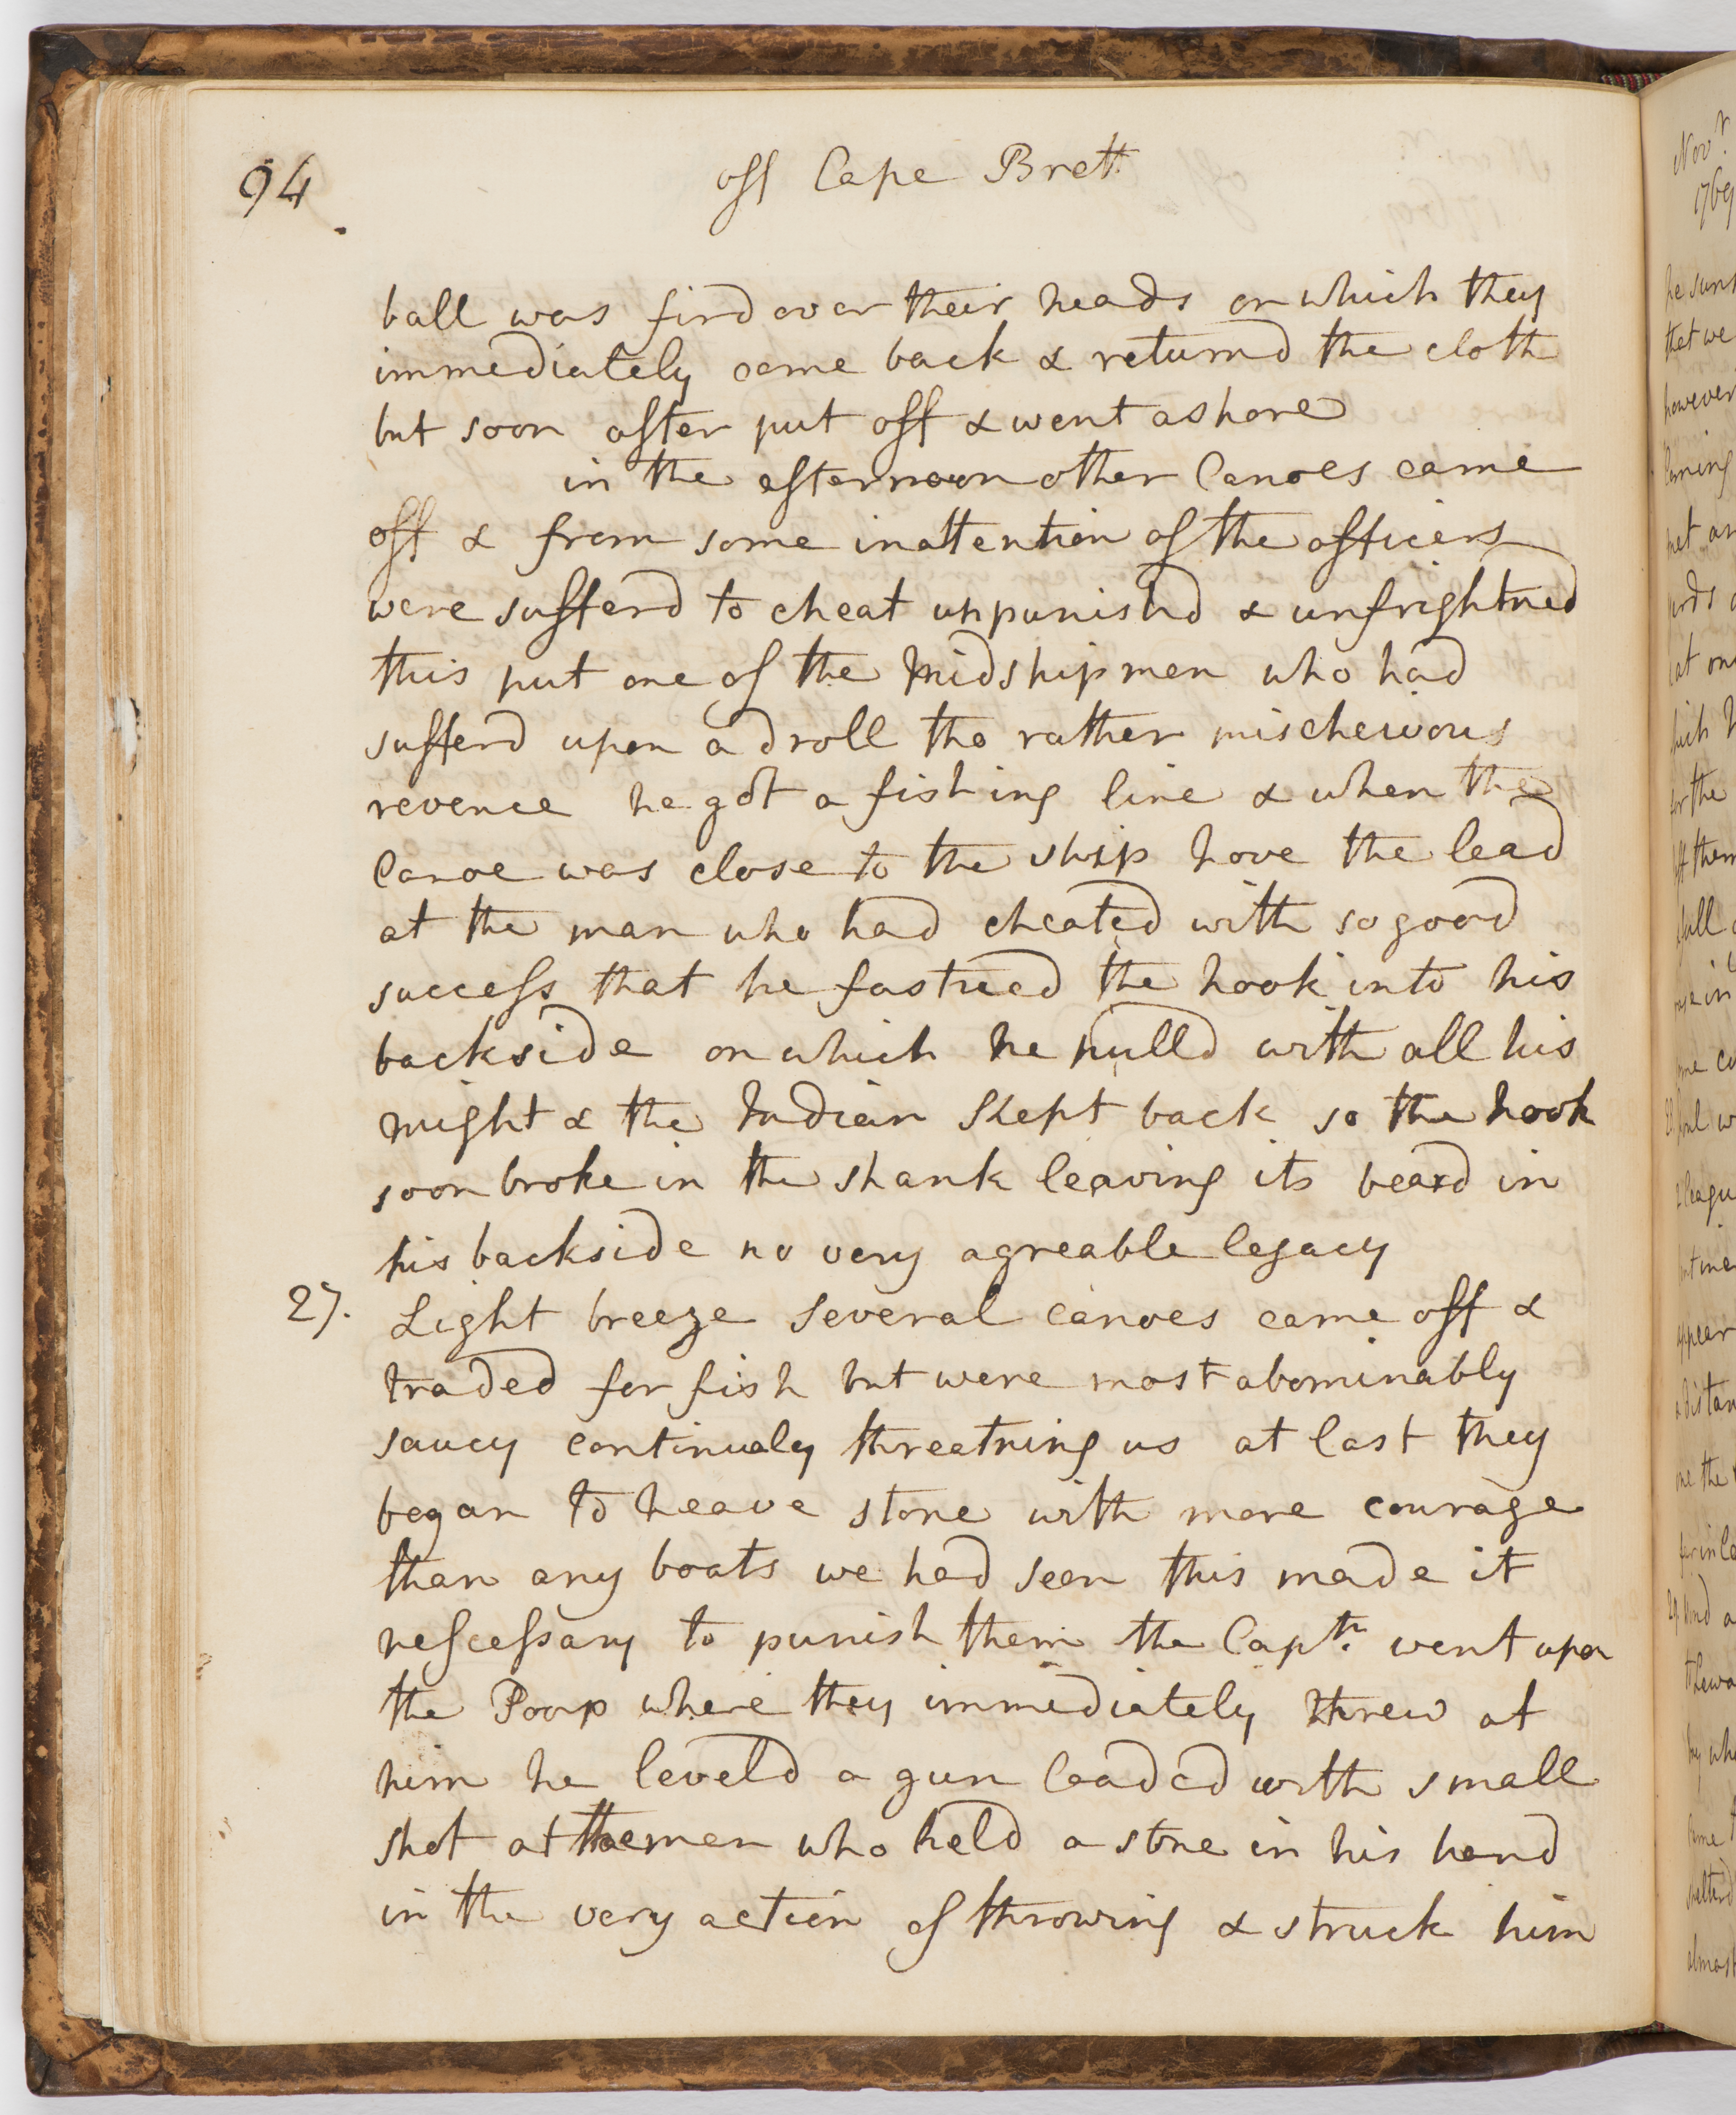 94
off Cape Brett.
ball was fird over their heads on which they
immediately came back & returnd the cloth
but soon after put off & went ashore
in the afternoon other Canoes came
off & from some inattention of the officers
were sufferd to cheat unpunishd & unfrightned
this put one of the Midshipmen who had
sufferd upon a droll tho rather mischeivous
revence he got a fishing line & when the
Canoe was close to the ship hove the lead
at the man who had cheated with so good
success that he fastned the hook into his
backside on which he pulld with all his
might & the Indian kept back so the hook
soon broke in the shank leaving its beard in
his backside no very agreable legacy
27. Light breeze several canoes came off &
traded for fish but were most abominably
saucy continualy threatning us at last they
began to heave stone with more courage
than any boats we had seen this made it
nescessary to punish them the Captn. went upon
the Poop where they immediately threw at
him he leveld a gun loaded with small
shot at the man who held a stone in his hand
in the very action of throwing & struck him
Novr.
1769
that we
however